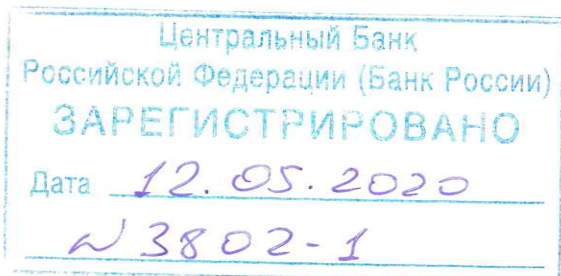 Центральный Банк
Российской Федерации (Банк России)
ЗАРЕГИСТРИРОВАНО
Дата 12.05.2020
N 3802-1